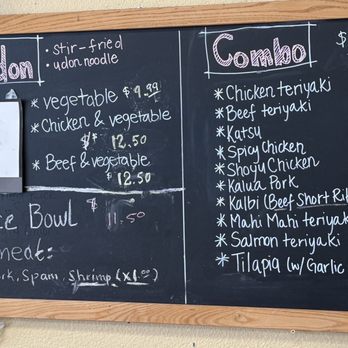 don
• stir-fried
• udon noodle
* vegetable $9.99
* Chicken & vegetable
$ 12.50
* Beef & vegetable
$ 12.50
Bowl $ 11.50
meat:
Spam, Shrimp (x1.00)
Combo $
* Chicken teriyaki
* Beef teriyaki
* Katsu
* Spicy Chicken
* Shoyu Chicken
* Kalua Pork
* Kalbi (Beef Short Rib
* Mahi Mahi teriyak
* Salmon teriyaki
* Tilapia (w/ Garlic